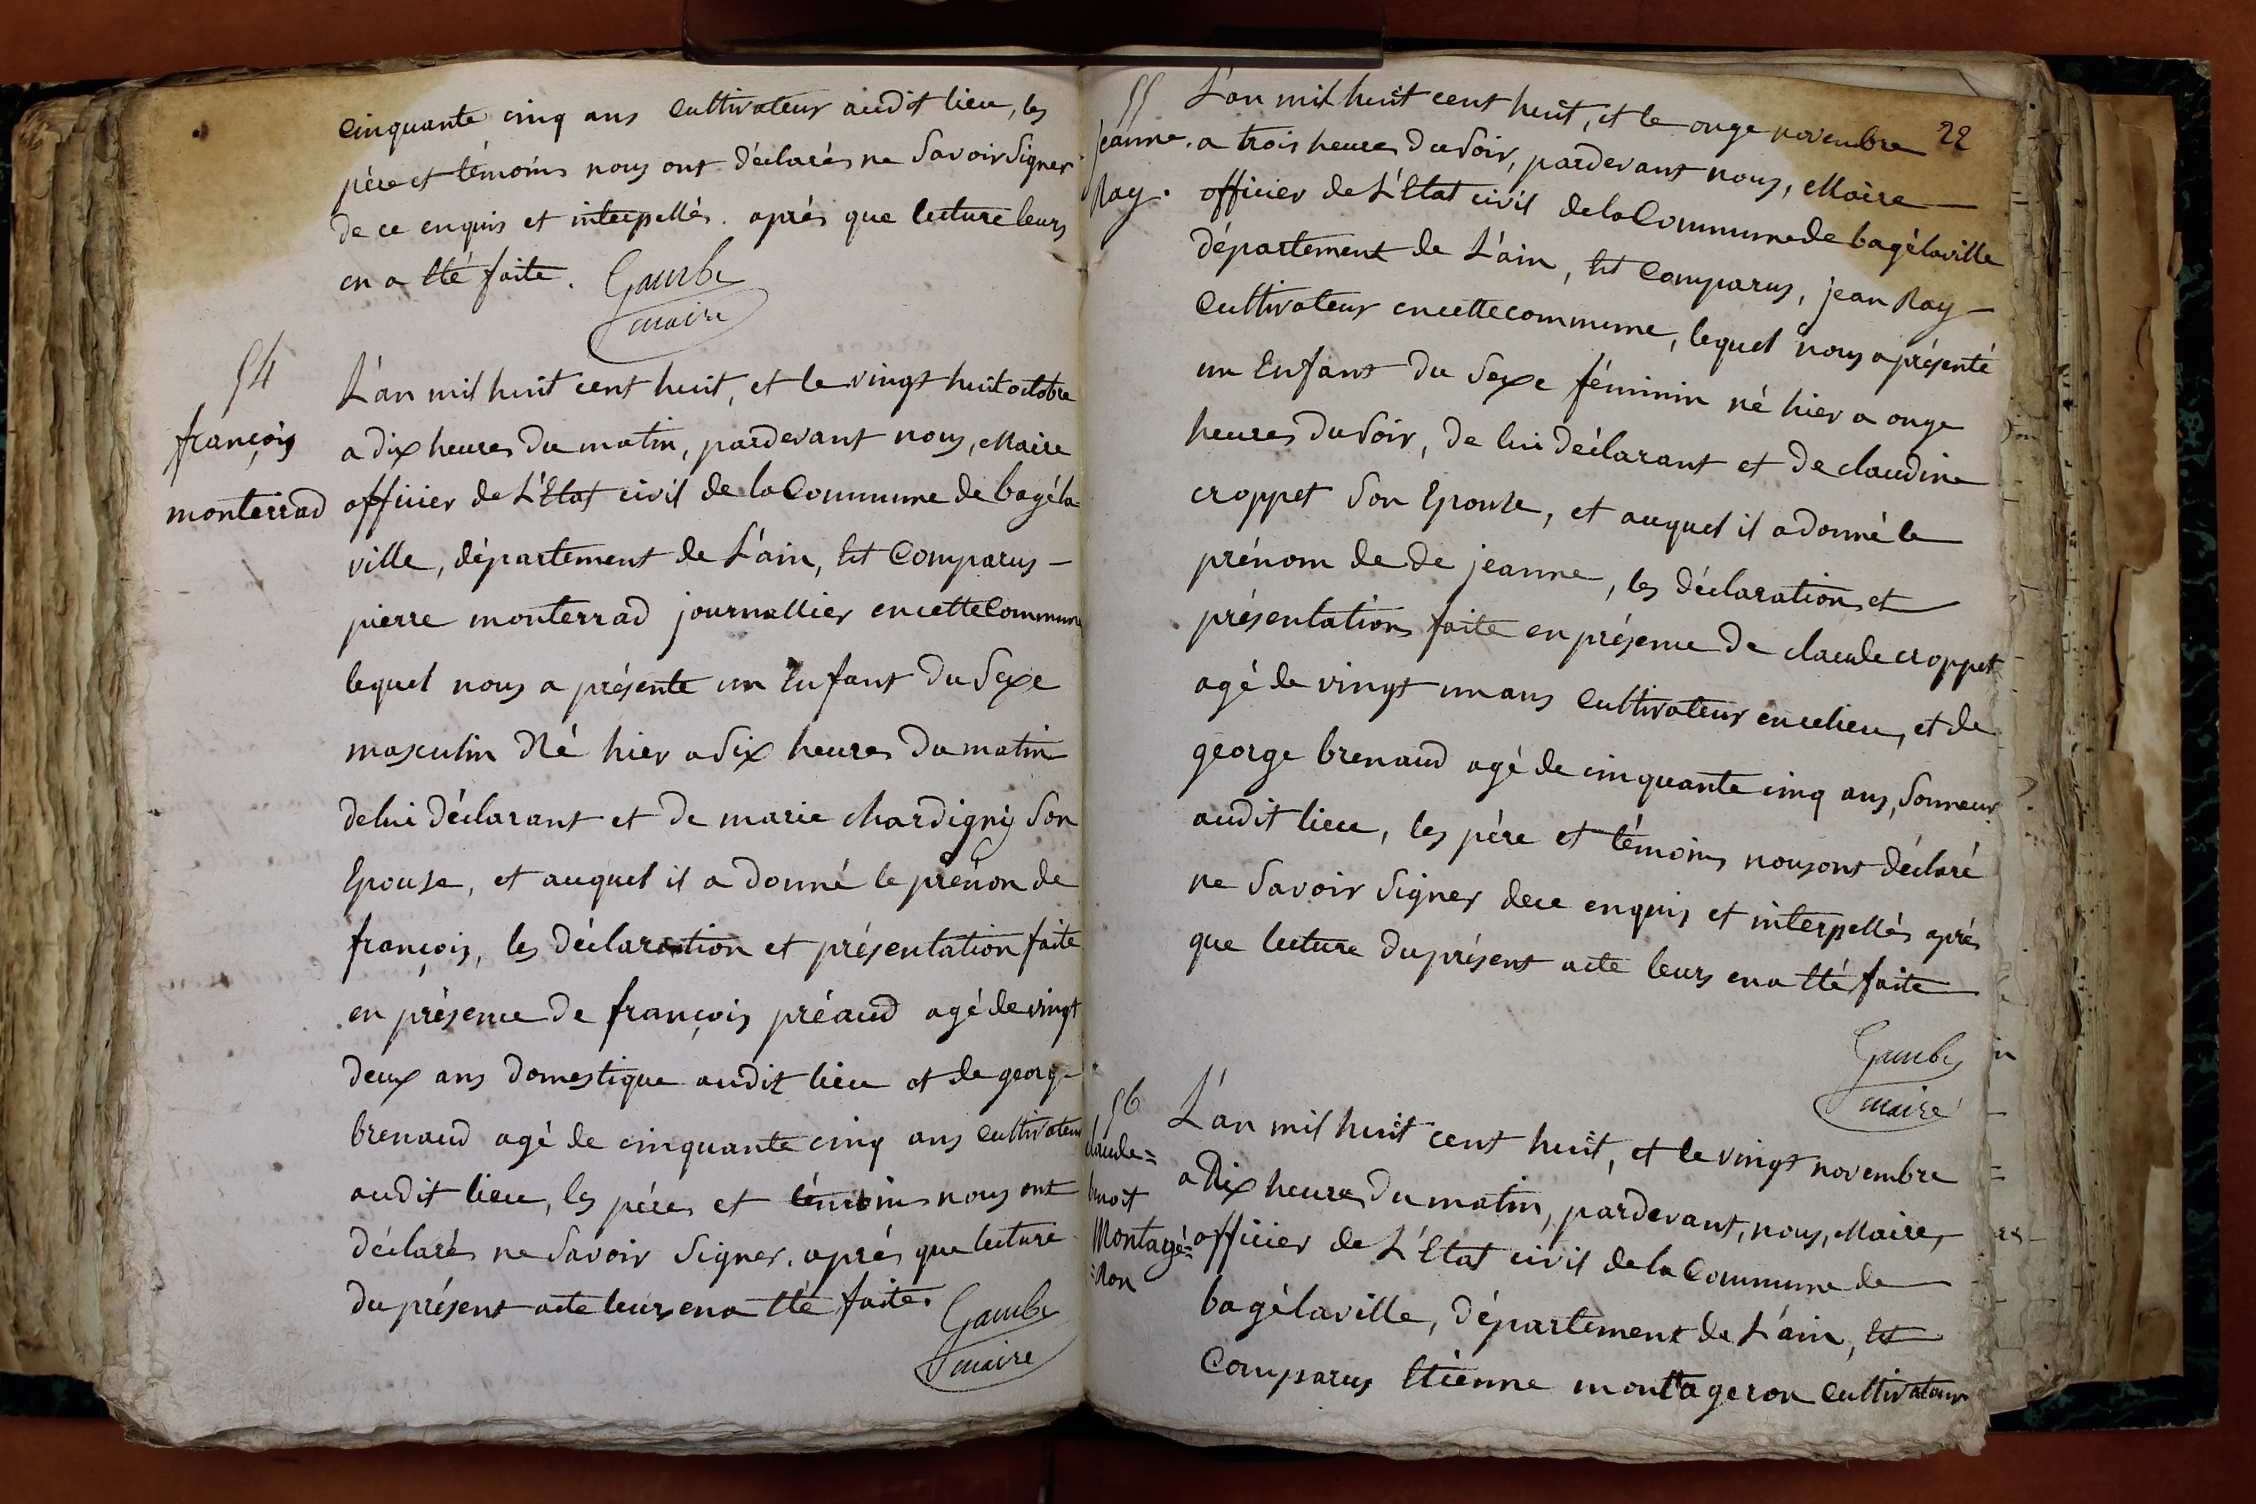 cinquante cinq ans cultivateur audit lieu, les
père et témoins nous ont déclarés ne Savoir Signer
de ce enquis et interpellés. aprés que lecture leurs
en a Eté faite. Gambe
maire
54
françois
monterrad
L'an mil huit cent huit, et le vingt huit octobre
a dix heures du matin, pardevant nous, Maire
officier de L'Etat civil de la Commune de bagéla
ville, département de L'ain, Est Comparus -
pierre monterrad journallier en cette Commune
lequel nous a présente un Enfant du Sexe
masculin Né hier a Six heures du matin
de lui déclarant et de marie chardigny Son
Epouse, et auquel il a donné le prénon de
françois, les déclaration et présentation faite
en présence de françois préaud agé de vingt
deux ans domestique audit lieu et de george
brenaud agé de cinquante cinq ans cultivateur
audit lieu, les pére et témoins nous ont
déclarés ne Savoir Signer. aprés que lecture
du présent acte leurs en a Eté faite.
Gambe
maire
22
55
Jeanne
Ray.
L'an mil huit cent huit, et le onze novembre
a trois heures du Soir, pardevant nous, Maire -
officier de L'Etat civil de la Commune de bagélaville
département de L'ain, Est Comparus, jean Ray -
Cultivateur en cette commune, lequel nous a présenté
un Enfant du Sexe féminin né hier a onze
heures du Soir, de lui déclarant et de claudine
croppet Son Epouse, et auquel il a donné le
prénom de de jeanne, les déclaration et
présentation faite en présence de claude croppet
agé de vingt un ans Cultivateur en ce lieu, et de
george brenaud agé de cinquante cinq ans, Sonneur
audit lieu, les père et témoins nous ont déclaré
ne Savoir Signer de ce enquis et interpellés aprés
que lecture du présent acte leurs en a Eté faite
Gambe
maire
56
claude =
benoit
Montagé=
=Ron
L'an mil huit cent huit, et le vingt novembre
a Dix heures du matin, pardevant, nous, Maire,
officier de L'Etat civil de la Commune de
bagélaville, département de L'ain, Est
Comparus Etienne montageron Cultivateur